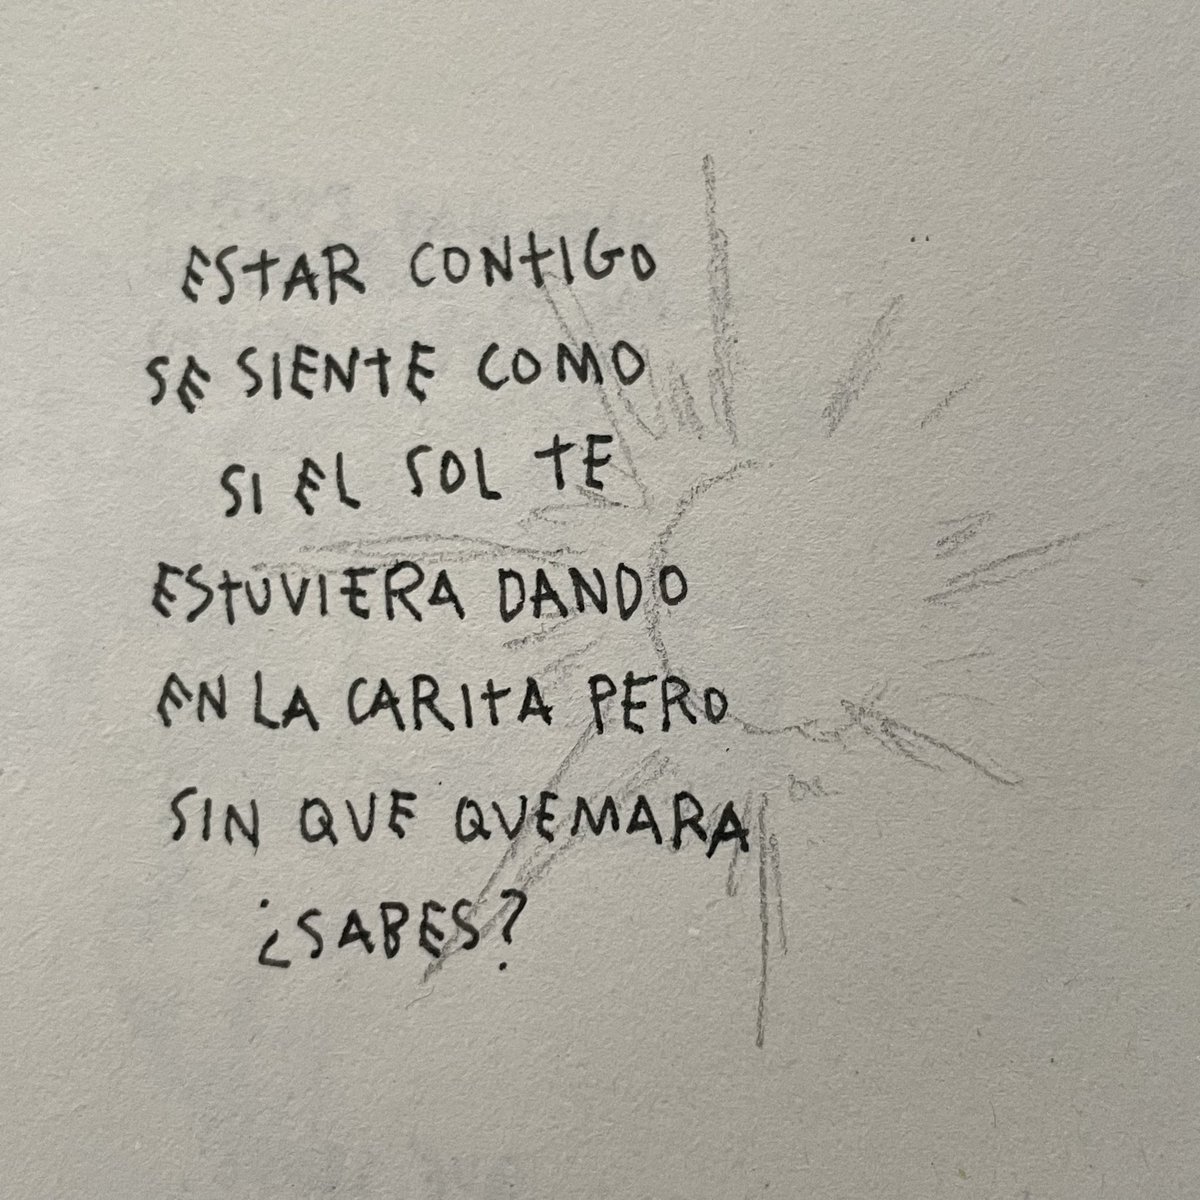 ESTAR CONTIGO
SE SIENTE COMO
SI EL SOL TE
ESTUVIERA DANDO
EN LA CARITA PERO
SIN QUE QUEMARA
¿SABES?